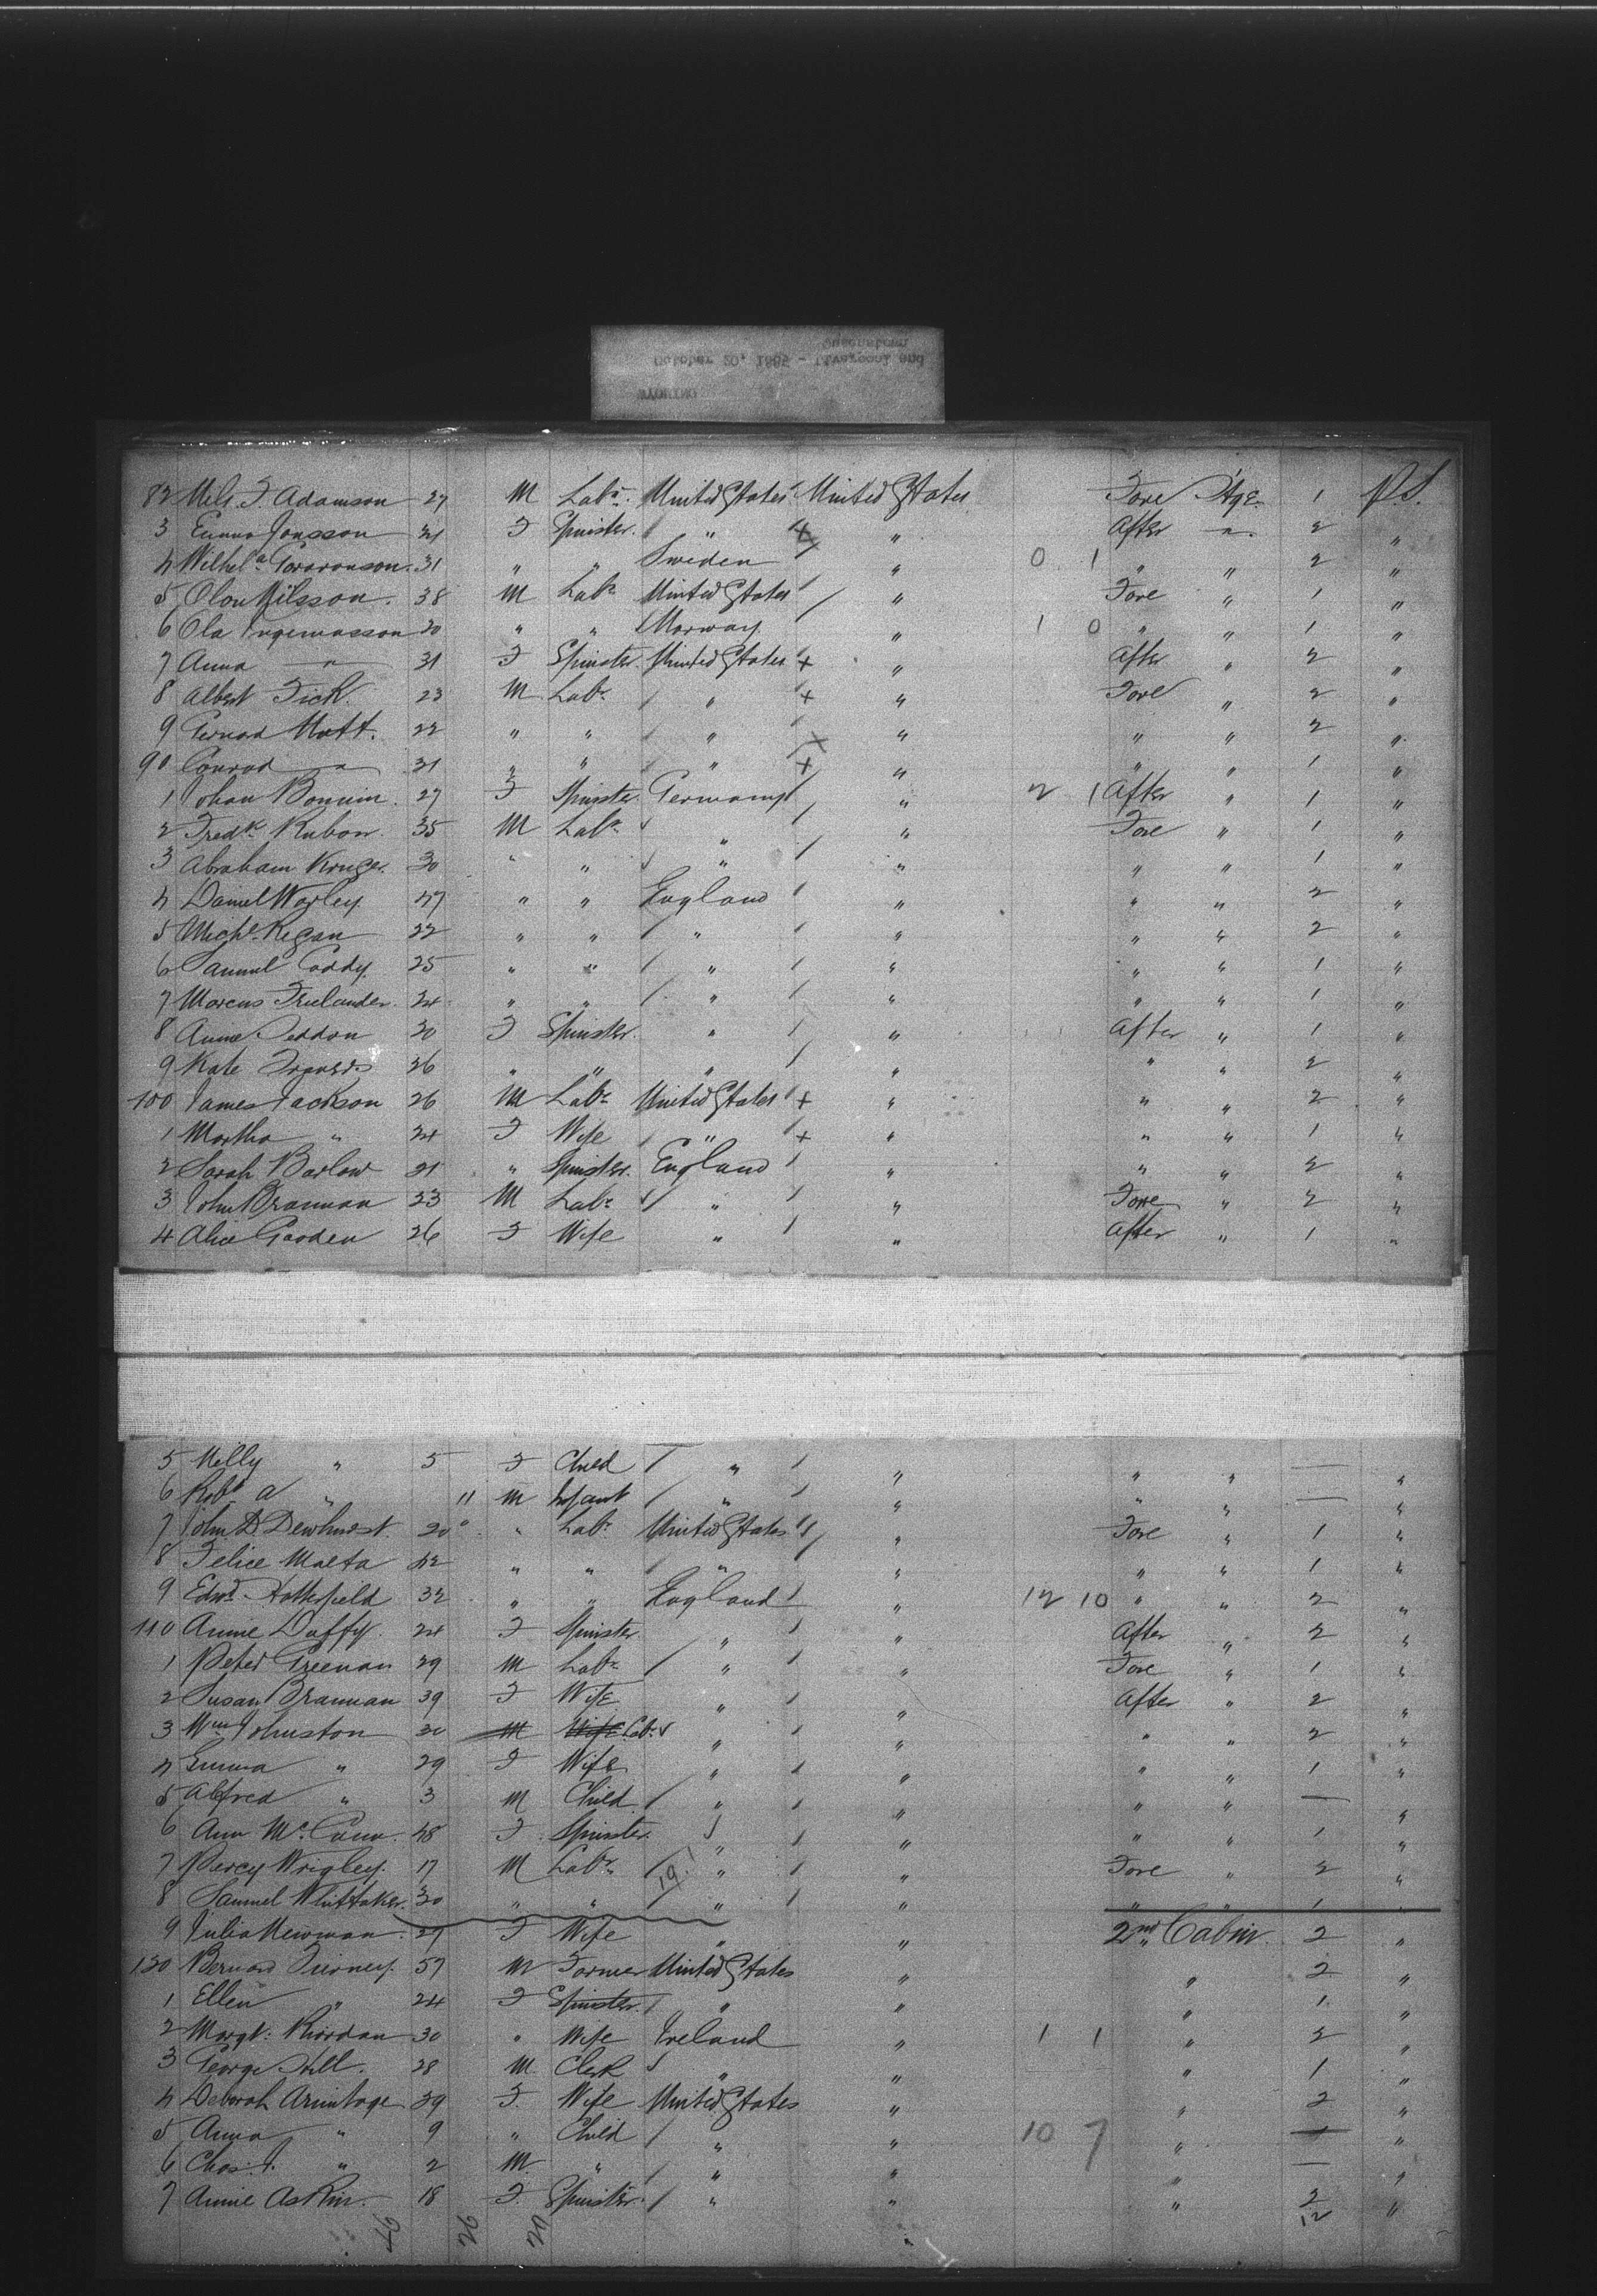 October 20, 1885 - Liverpool and
Queenstown
WYOMING
82 Nels F. Adamson 27 M Labr. United States United States Fore Stge. 1 P.S.
3 Emma Jonsson 21 F Spinster. " " After " 2 "
4 Wilhela 31 " " Sweden " 0 1 " " 2 "
5 Olou Nilsson. 38 M Labr United States " Fore " 1 "
6 Ola Ingemasson 20 " " Norway " 1 0 " " 1 "
7 Anna " 31 F Spinster United States + " After " 2 "
8 Albert Fick. 23 M Labr " + " Fore " 2 "
9 Mott. 22 " " " + " " " 2 "
90 Conrad " 31 " " " + " " " 1 "
1 Johan 27 F Spinster Germany " 2 1 After " 1 "
2 Fredk Rubon. 35 M Labr " " Fore " 1 "
3 Abraham Kruger. 30 " " " " " " 1 "
4 Daniel Worley. 47 " " England " " " 2 "
5 Michl. Regan 22 " " " " " " 2 "
6 Samuel Coddy. 25 " " " " " " 1 "
7 Marcus Frelander. 24 " " " " " " 1 "
8 Anne Seddon 20 F Spinster. " " After " 1 "
9 Kate Travers 26 " " " " " " 2 "
100 James Jackson 26 M Labr United States + " " " 2 "
1 Martha " 24 F Wife " + " " " 1 "
2 Sarah Barlow 21 " Spinster. England " " " 2 "
3 John Brannan 23 M Labr " " Fore " 2 "
4 Alice Gooden 26 F Wife " " After " 1 "
5 Milly " 5 F Child " " " " — "
6 Robt A " 11 M Infant " " " " — "
7 John D. Dewhurst. 20 " Labr United States " Fore " 1 "
8 Felice Maeta 42 " " " " " " 1 "
9 Edwd. Hattersfield 32 " " England " 12 10 " " 2 "
110 Annie Duffy. 24 F Spinster " " After " 2 "
1 Peter Greenan 29 M Labr " " Fore " 1 "
2 Susan Brannan 39 F Wife " " After " 2 "
3 Wm Johnston 30 M Wife Labr " " " " 2 "
4 Emma " 29 F Wife " " " " 1 "
5 Alfred " 3 M Child " " " " — "
6 Ann McCann. 48 F Spinster " " " " 1 "
7 Percy Wrigley. 17 M Labr 19 " " Fore " 2 "
8 Samuel Whittaker. 30 " " " " " " 1 "
9 Julia Newman. 27 F Wife " " 2nd Cabin. 2 "
120 Bernard Tierney. 57 M Farmer United States " " 2 "
1 Ellen " 24 F Spinster. " " " 1 "
2 Margt. Riordan 30 " Wife Ireland " 1 1 " 2 "
3 George Hill. 28 M Clerk " " " 1 "
4 Deborah Armitage 39 F. Wife United States " " 2 "
5 Anna " 9 " Child " " 10 7 " — "
6 Chas. J. " 2 M. " " " " — "
7 Annie Askin. 18 F. Spinster. " " " 2 "
12